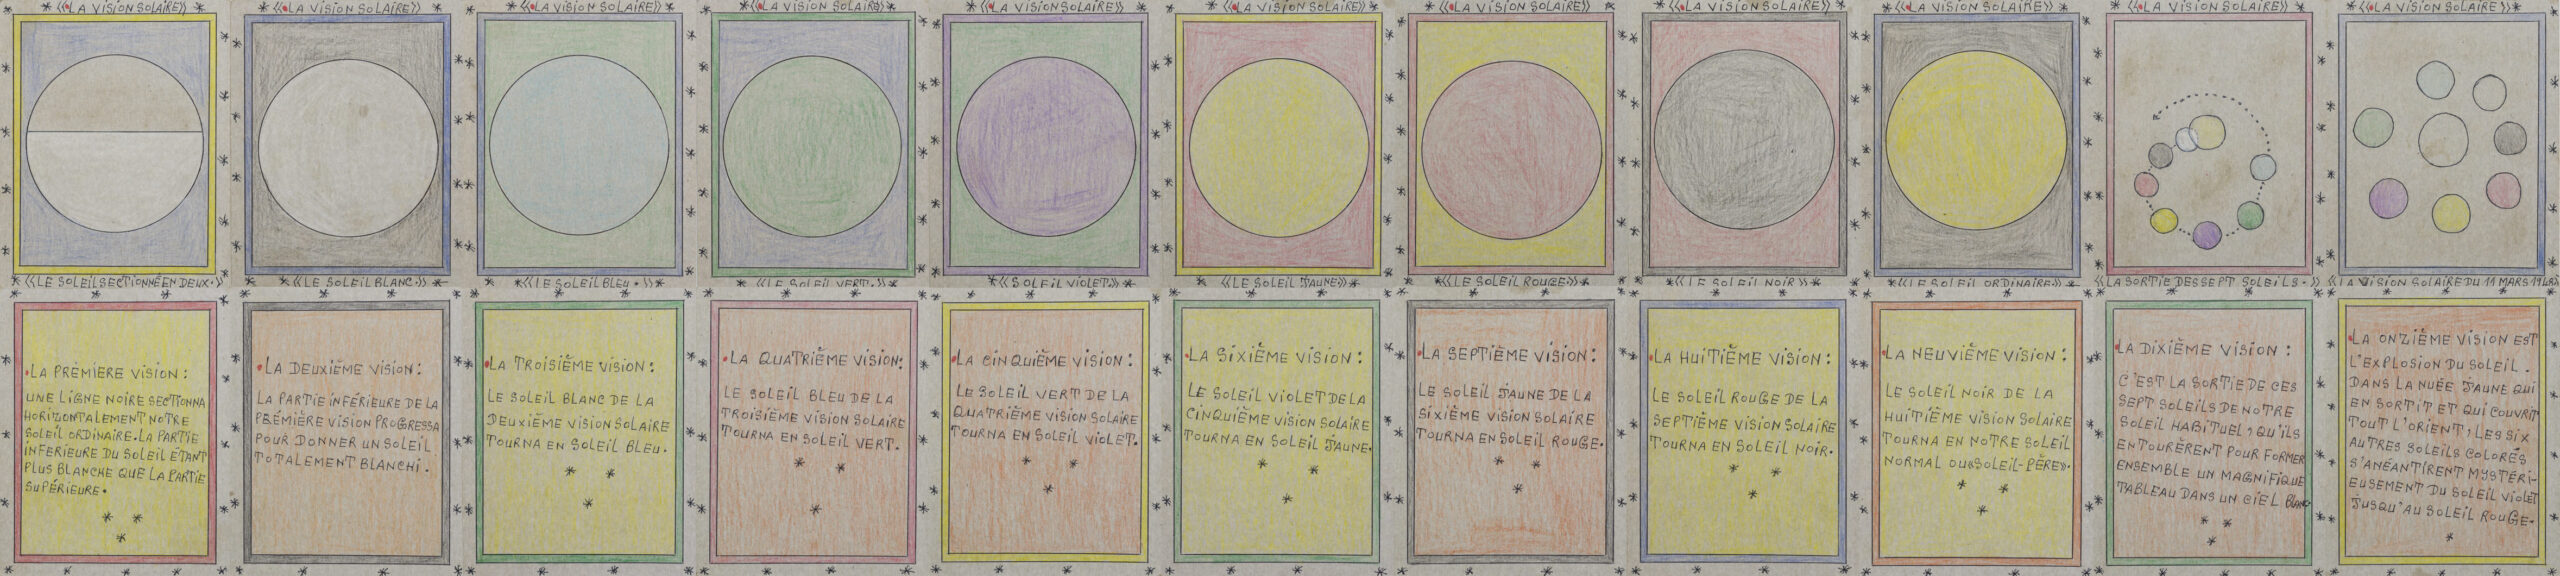 «LA VISION SOLAIRE»
«LE SOLEIL SECTIONNÉ EN DEUX.»
.LA PRÈMIERE VISION :
UNE LIGNE NOIRE SECTIONNA
HORIZONTALEMENT NOTRE
SOLEIL ORDINAIRE. LA PARTIE
INFERIEURE DU SOLEIL ÉTANT
PLUS BLANCHE QUE LA PARTIE
SUPÉRIEURE.
«LA VISION SOLAIRE»
«LE SOLEIL BLANC.»
.LA DEUXIÈME VISION :
LA PARTIE INFÉRIEURE DE LA
PRÉMIÈRE VISION PROGRESSA
POUR DONNER UN SOLEIL
TOTALEMENT BLANCHI.
«LA VISION SOLAIRE»
«LE SOLEIL BLEU.»
.LA TROISIÈME VISION :
LE SOLEIL BLANC DE LA
DEUXIÈME VISION SOLAIRE
TOURNA EN SOLEIL BLEU.
«LA VISION SOLAIRE»
«LE SOLEIL VERT.»
.LA QUATRIÈME VISION:
LE SOLEIL BLEU DE LA
TROISIÈME VISION SOLAIRE
TOURNA EN SOLEIL VERT.
«LA VISION SOLAIRE»
«SOLEIL VIOLET.»
.LA CINQUIÈME VISION :
LE SOLEIL VERT DE LA
QUATRIÈME VISION SOLAIRE
TOURNA EN SOLEIL VIOLET.
«LA VISION SOLAIRE»
«LE SOLEIL JAUNE»
.LA SIXIÈME VISION :
LE SOLEIL VIOLET DE LA
CINQUIÈME VISION SOLAIRE
TOURNA EN SOLEIL JAUNE.
«LA VISION SOLAIRE»
«LE SOLEIL ROUGE»
.LA SEPTIÈME VISION :
LE SOLEIL JAUNE DE LA
SIXIÈME VISION SOLAIRE
TOURNA EN SOLEIL ROUGE.
«LA VISION SOLAIRE»
«LE SOLEIL NOIR»
.LA HUITIÈME VISION :
LE SOLEIL ROUGE DE LA
SEPTIÈME VISION SOLAIRE
TOURNA EN SOLEIL NOIR.
«LA VISION SOLAIRE»
«LE SOLEIL ORDINAIRE»
.LA NEUVIÈME VISION :
LE SOLEIL NOIR DE LA
HUITIÈME VISION SOLAIRE
TOURNA EN NOTRE SOLEIL
NORMAL OU «SOLEIL-PÈRE».
«LA VISION SOLAIRE»
«LA SORTIE DES SEPT SOLEILS.»
.LA DIXIÈME VISION :
C'EST LA SORTIE DE CES
SEPT SOLEILS DE NOTRE
SOLEIL HABITUEL, QU'ILS
ENTOURÈRENT POUR FORMER
ENSEMBLE UN MAGNIFIQUE
TABLEAU DANS UN CIEL BLANC
«LA VISION SOLAIRE»
«LA VISION SOLAIRE DU 11 MARS 1948»
.LA ONZIÈME VISION EST
L'EXPLOSION DU SOLEIL.
DANS LA NUÉE JAUNE QUI
EN SORTIT ET QUI COUVRIT
TOUT L'ORIENT, LES SIX
AUTRES SOLEILS COLORÉS
S'ANÉANTIRENT MYSTÉRI-
EUSEMENT DU SOLEIL VIOLET
JUSQU'AU SOLEIL ROUGE.